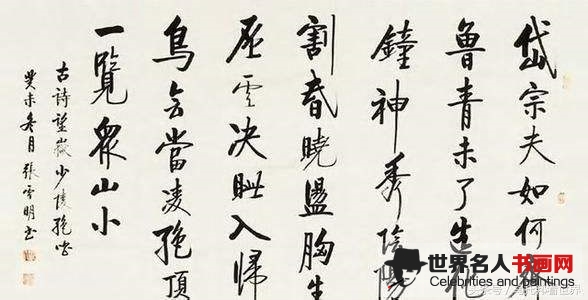 岱宗夫如何齊
魯青未了造化
鐘神秀陰陽
割昏曉盪胸生
层云决眦入歸
鳥會當凌絶頂
一覽眾山小
古詩望嶽少陵絶唱
癸未冬月張雪明书
世界名人书画网
Celebrities and painting